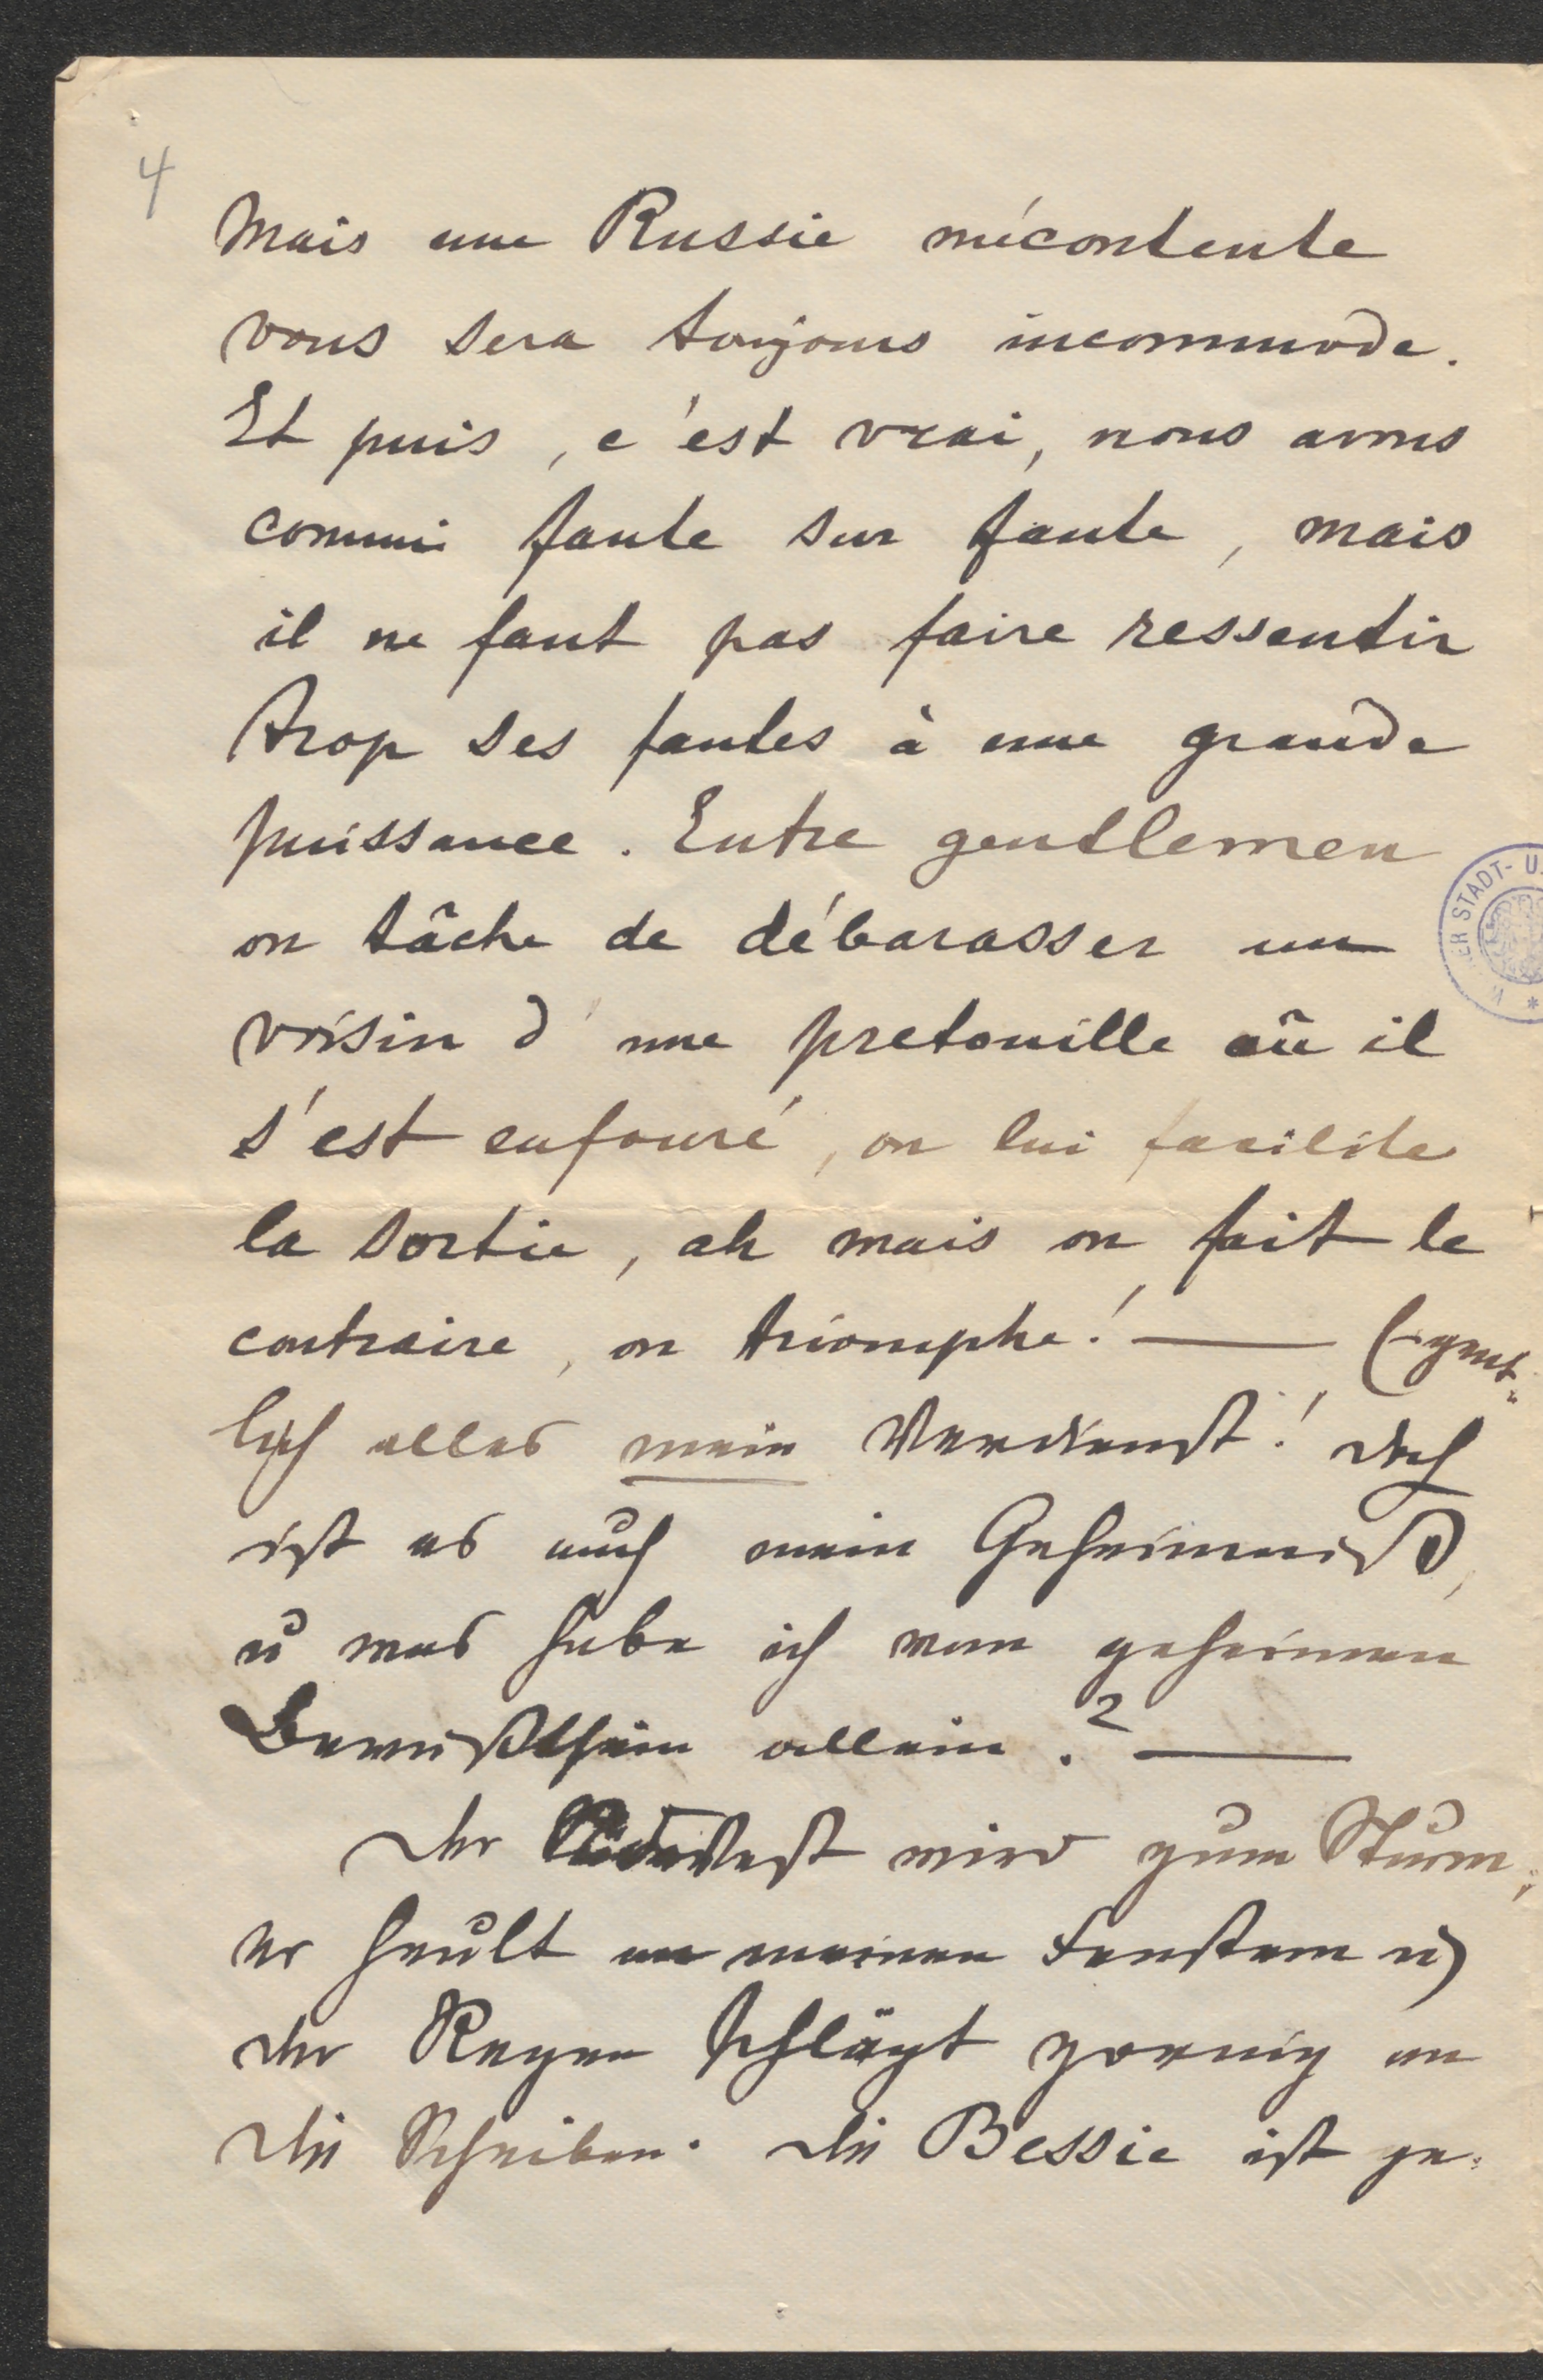 4
Mais une Russie mécontente
vous sera toujours incommode.
Et puis, c'est vrai, nous avons
commi faute sur faute, mais
il ne faut pas faire ressentir
trop ses fautes à une grande
puissance. Entre gentlemen
on tâche de débarasser un
voisin d'une pretouille où il
s'est enfouré, on lui facilite
la sortie, ah mais on fait le
contraire, on triomphe! — Eigent-
lich alles mein Verdienst! doch
ist es auch mein Geheimniß,
u was habe ich vom geheimen
Bewußtsein allein? —
Der Südwest wird zum Sturm,
er heult an meinen Fenstern u
der Regen schlägt zornig an
die Scheiben. Die Bessie ist ge-
ER STADT- U